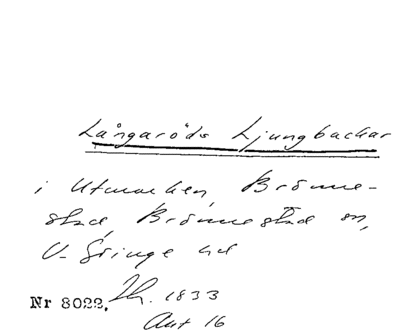 Långaröds Ljungbackar
i Utmarken, Brönne-
stad, Brönnestad sn,
V. Göinge hd
Nr 8022. Th. 1833
Akt 16